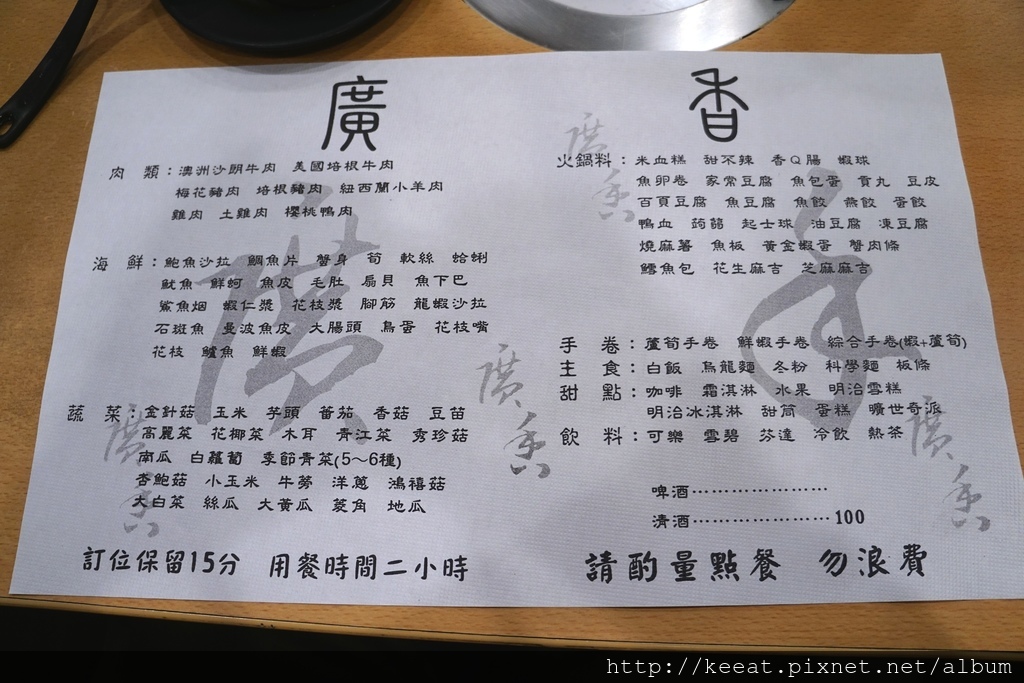 廣 香
肉 類：澳洲沙朗牛肉 美國培根牛肉
梅花豬肉 培根豬肉 紐西蘭小羊肉
雞肉 土雞肉 櫻桃鴨肉
海 鮮：鮑魚沙拉 鯛魚片 蟹身 筍 軟絲 蛤蜊
魷魚 鮮蚵 魚皮 毛肚 扇貝 魚下巴
鯊魚烟 蝦仁漿 花枝漿 腳筋 龍蝦沙拉
石斑魚 曼波魚皮 大腸頭 鳥蛋 花枝嘴
花枝 鱸魚 鮮蝦
蔬 菜：金針菇 玉米 芋頭 蕃茄 香菇 豆苗
高麗菜 花椰菜 木耳 青江菜 秀珍菇
南瓜 白蘿蔔 季節青菜(5～6種)
杏鮑菇 小玉米 牛蒡 洋蔥 鴻禧菇
大白菜 絲瓜 大黃瓜 菱角 地瓜
訂位保留15分 用餐時間二小時
火鍋料：米血糕 甜不辣 香Q腸 蝦球
魚卵卷 家常豆腐 魚包蛋 貢丸 豆皮
百頁豆腐 魚豆腐 魚餃 燕餃 蛋餃
鴨血 蒟蒻 起士球 油豆腐 凍豆腐
燒麻薯 魚板 黃金蝦蛋 蟹肉條
鱈魚包 花生麻吉 芝麻麻吉
手 卷：蘆筍手卷 鮮蝦手卷 綜合手卷(蝦+蘆筍)
主 食：白飯 烏龍麵 冬粉 科學麵 板條
甜 點：咖啡 霜淇淋 水果 明治雪糕
明治冰淇淋 甜筒 蛋糕 曠世奇派
飲 料：可樂 雪碧 芬達 冷飲 熱茶
啤酒…………………
清酒…………………100
請酌量點餐 勿浪費
廣香
廣香
廣香
廣香
廣 香
http://keeat.pixnet.net/album